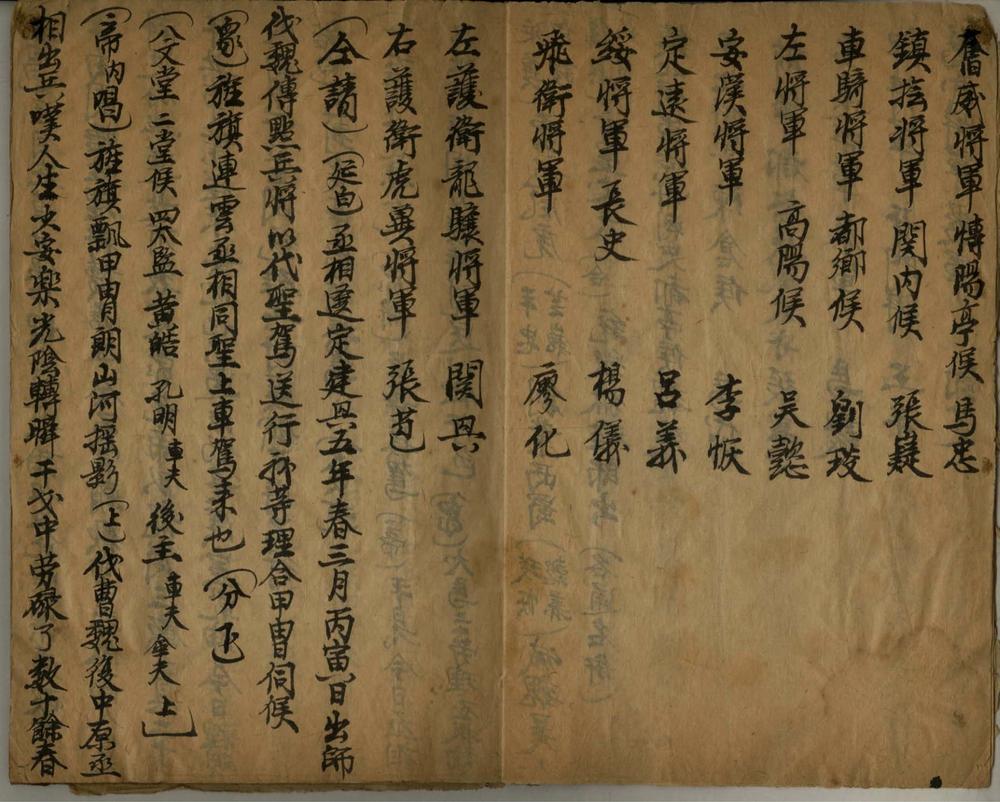 奮威將軍慱陽亭候 馬忠
鎮撫將軍 関内候 張嶷
車騎將軍 都鄉候 劉琰
左將軍 高陽候 吳懿
安漢將軍 李恢
定遠將軍 吕義
綏將軍 長史 楊儀
飛衛將軍 廖化
左護衛龍驤將軍 関興
右護衛虎翼將軍 張苞
(仝請)(延白)丞相選定建興五年春三月丙寅日出師
伐魏傳點兵將以代聖駕送行我等理合甲冑伺候
(眾)旌旗連雲丞相同聖上車駕来也(分下)
(八文堂二堂候四太監黄皓 孔明車夫 後主車夫傘夫上)
(帝内唱)旌旗飄甲冑朗山河摇影(上)伐曹魏復中原丞
相出兵嘆人生少安樂光陰轉瞬干戈中劳碌了数十餘春